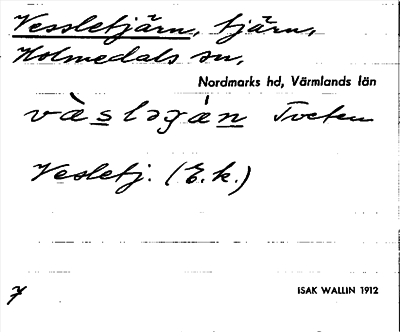 Vessletjärn, tjärn,
Holmedals sn,
Nordmarks hd, Värmlands län
Tveten
Vesletj. (E.k.)
7
ISAK WALLIN 1912